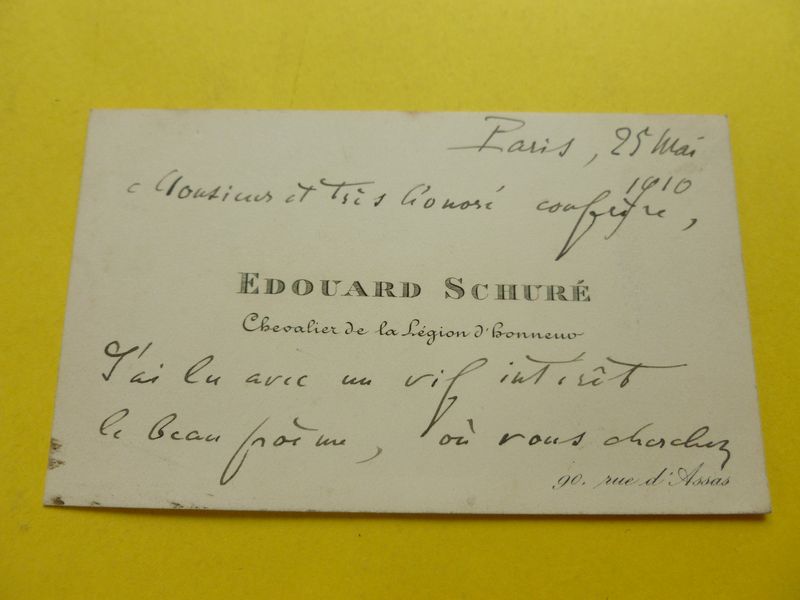 Paris, 25 Mai
1910
Monsieur et très honoré confrère,
EDOUARD SCHURÉ
Chevalier de la Légion d'honneur
J'ai lu avec un vif intérêt
le beau poème, où vous cherchez
90. rue d'Assas